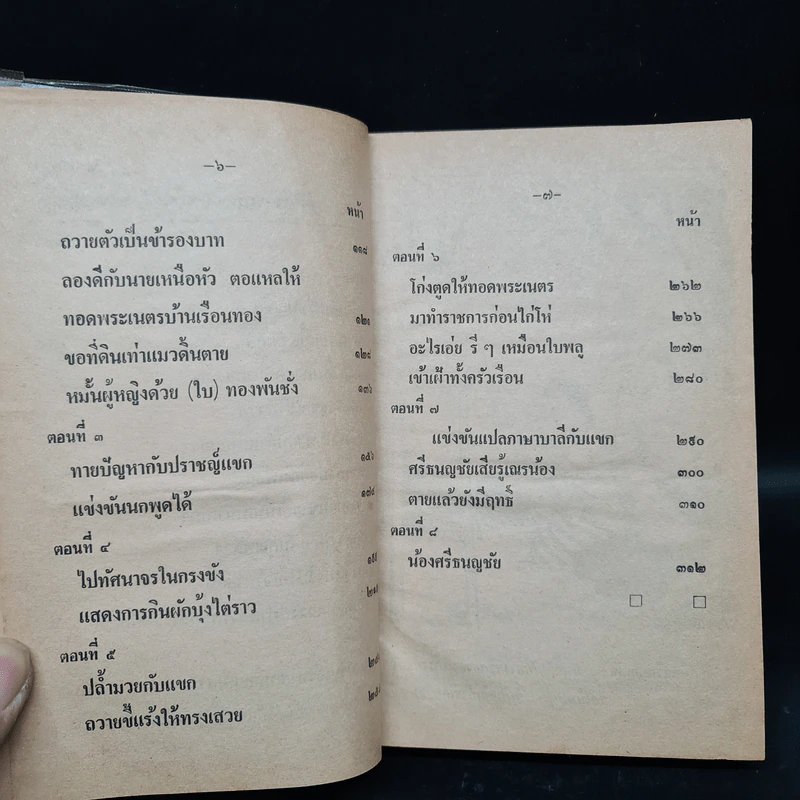 –๖–
หน้า
ถวายตัวเป็นข้ารองบาท ๑๑๘
ลองดีกับนายเหนือหัว ตอแหลให้
ทอดพระเนตรบ้านเรือนทอง ๑๒๑
ขอที่ดินเท่าแมวดิ้นตาย ๑๒๘
หมั้นผู้หญิงด้วย (ใบ) ทองพันชั่ง ๑๓๖
ตอนที่ ๓
ทายปัญหากับปราชญ์แขก ๑๕๖
แข่งขันนกพูดได้ ๑๗๔
ตอนที่ ๔
ไปทัศนาจรในกรงขัง
แสดงการกินผักบุ้งไต่ราว
ตอนที่ ๕
ปล้ำมวยกับแขก
ถวายขี้แร้งให้ทรงเสวย
–๗–
หน้า
ตอนที่ ๖
โก่งตูดให้ทอดพระเนตร ๒๖๒
มาทำราชการก่อนไก่โห่ ๒๖๖
อะไรเอ่ย รี ๆ เหมือนใบพลู ๒๗๓
เข้าเฝ้าทั้งครัวเรือน ๒๘๐
ตอนที่ ๗
แข่งขันแปลภาษาบาลีกับแขก ๒๙๐
ศรีธนญชัยเสียรู้เณรน้อง ๓๐๐
ตายแล้วยังมีฤทธิ์ ๓๑๐
ตอนที่ ๘
น้องศรีธนญชัย ๓๑๒